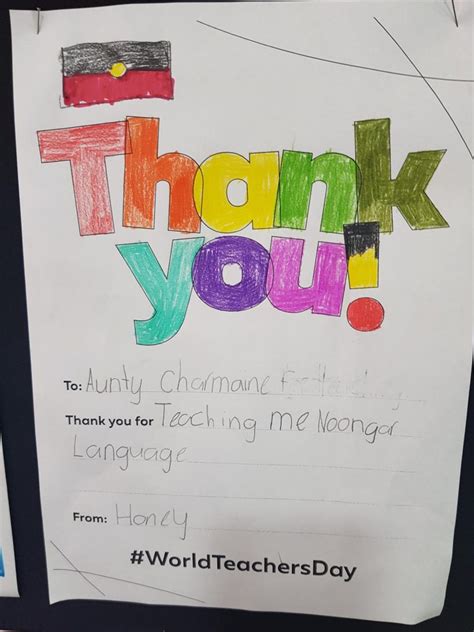 Thank
you!
To: Aunty Charmaine
Thank you for Teaching me Noongar
Language
From: Honey
#WorldTeachersDay